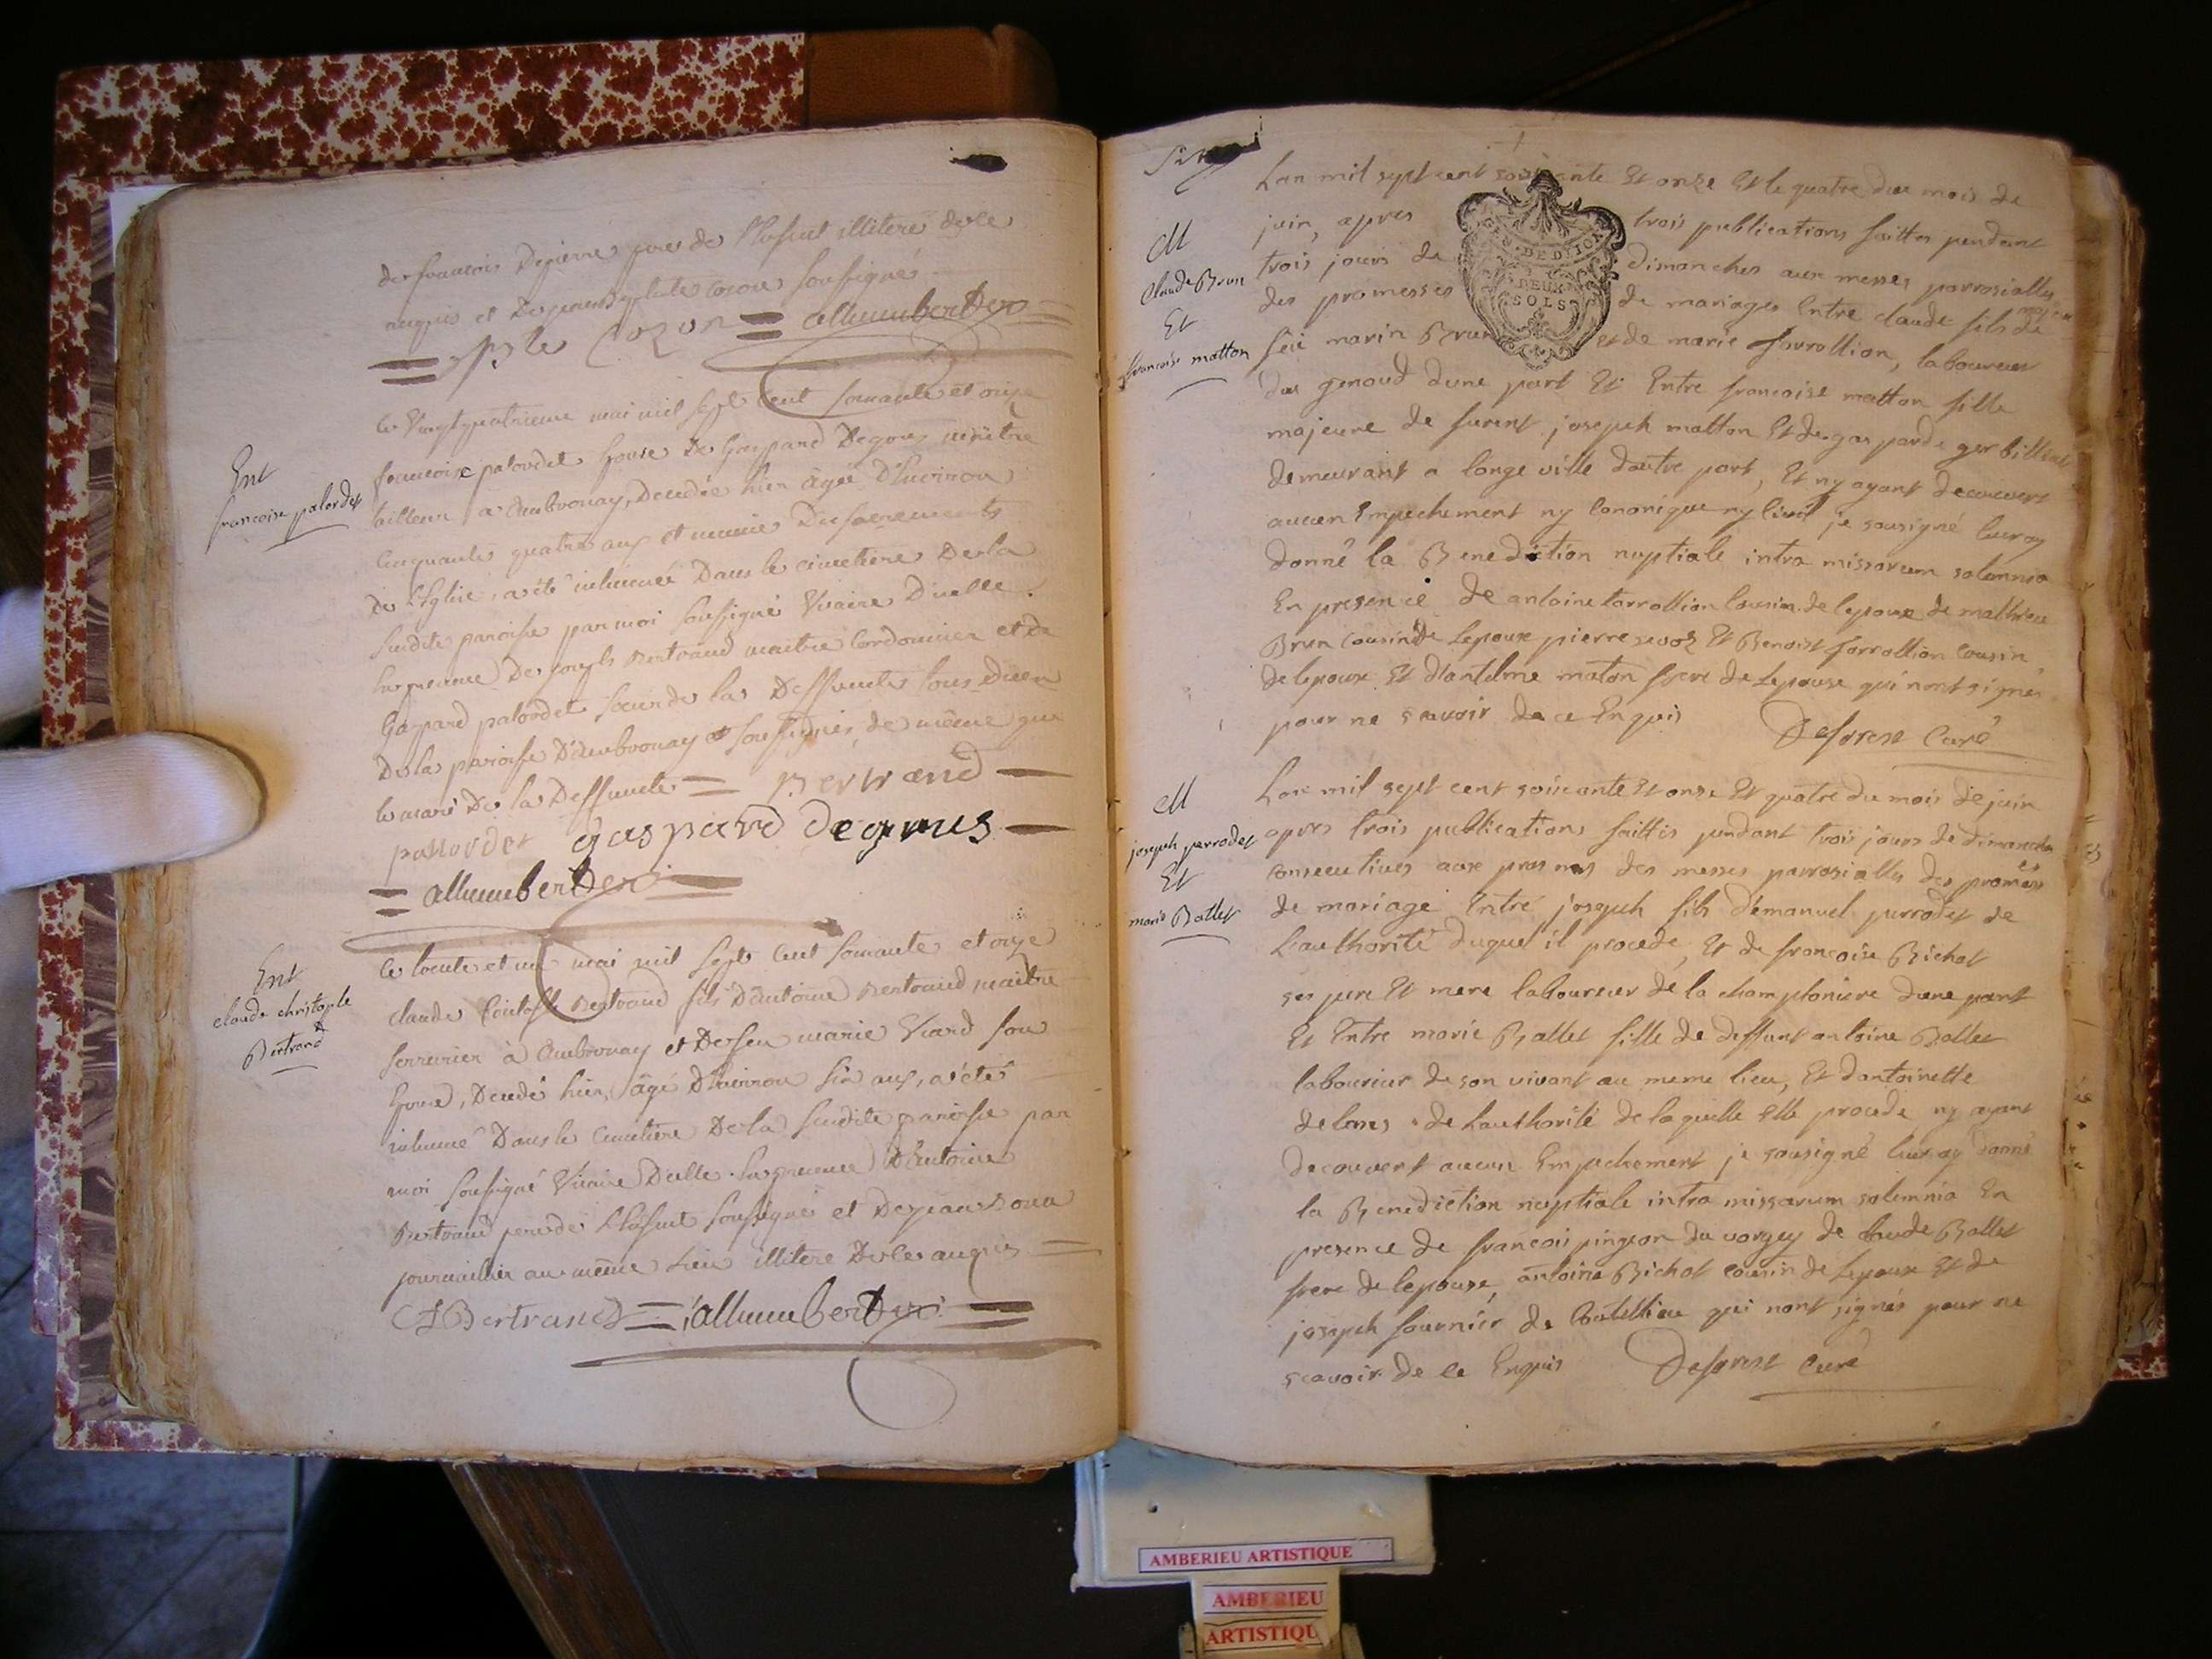 de francois Depierre pere de l'enfant illitere de le
enquis et de jean Bpte Cozon soussignés
= jn Bpte Cozon = allumbert Den =
le vingt quatrieme mai mil sept cent soixante et onze
Ent
francoise palordet
francoise palordet epouse de Gaspard Degous maitre
tailleur a Ambronay, Decedée hier âgée D'environ
cinquante quatre ans et munie des sacrements
de l'Eglise, a été inhumée Dans le cimetiere De la
susdite paroisse par moi soussigné Vicaire D'icelle.
En presence De Bertrand maitre Cordonnier et de
Gaspard palordet de la Deffunte tous Deux
De la paroisse D'Ambronay et soussignés, de même que
le mari De la Deffunte = Bertrand
palordet gaspard degous
= allumbert Den
Ent
claude christople
Bertrand
le trente et un mai mil sept cent soixante et onze
claude Bertrand fils D'Antoine Bertrand maitre
serrurier à Ambronay et De feu marie Viard son
Epouse, Decedé hier, âgé D'environ six ans, a été
inhumé Dans le Cimetiere De la susdite paroisse par
moi soussigné Vicaire D'icelle. En presence D'Antoine
Bertrand pere de l'enfant soussigné et De jean
journallier au même Lieu illitere De le enquis =
A Bertrand = allumbert Den =
M
Claude Brun
Et
francoise matton
Lan mil sept cent soixante Et onze Et le quatre du mois de
juin, apres trois publications faittes pendant
trois jours de dimanches aux messes parrosialles
des promesses de mariages Entre claude fils majeur de
feu marin Brun et de marie forrollion, laboureur
du genoud dune part Et Entre francoise matton fille
majeure de furent joseph matton Et de gasparde gerbillat
demeurant a longe ville dautre part, Et ny ayant decouvert
aucun Empechement ny Canonique ny Civil je sousigné Curé ay
donné la Benediction nuptiale intra missarum solemnia
En presence de antoine forrollion Cousin de lepoux de mathieu
Brun Cousin de Lepoux pierre sevoz Et Benoist forrollion Cousin
de lepoux Et d'antelme maton frere de Lepouse qui n'ont signés
pour ne scavoir de ce Enquis Deforest Curé
GEN. DE DIJON
DEUX
SOLS
M
joseph perrodet
Et
marie Ballet
Lan mil sept cent soixante Et onze Et quatre du mois de juin
apres trois publications faittes pendant trois jours de dimanches
consecutives aux prosnes des messes parrosialles des promesses
de mariage Entre joseph fils d'emanuel perrodet de
Lauthorité duquel il procede, Et de francoise Bichat
ses pere Et mere laboureur de la champloniere dune part
Et Entre marie Ballet fille de deffunt antoine Ballet
laboureur de son vivant au meme lieu, Et dantoinette
de lons de Lauthorité de laquelle Elle procede ny ayant
decouvert aucun Empechement je sousigné Curé ay donné
la Benediction nuptiale intra missarum solemnia En
presence de francois pingeon du vorgey de Claude Ballet
frere de lepouse, antoine Bichat cousin de Lepoux Et de
joseph fournier de Coutellieu qui nont signés pour ne
scavoir de ce Enquis Deforest Curé
AMBERIEU ARTISTIQUE
AMBERIEU
ARTISTIQU